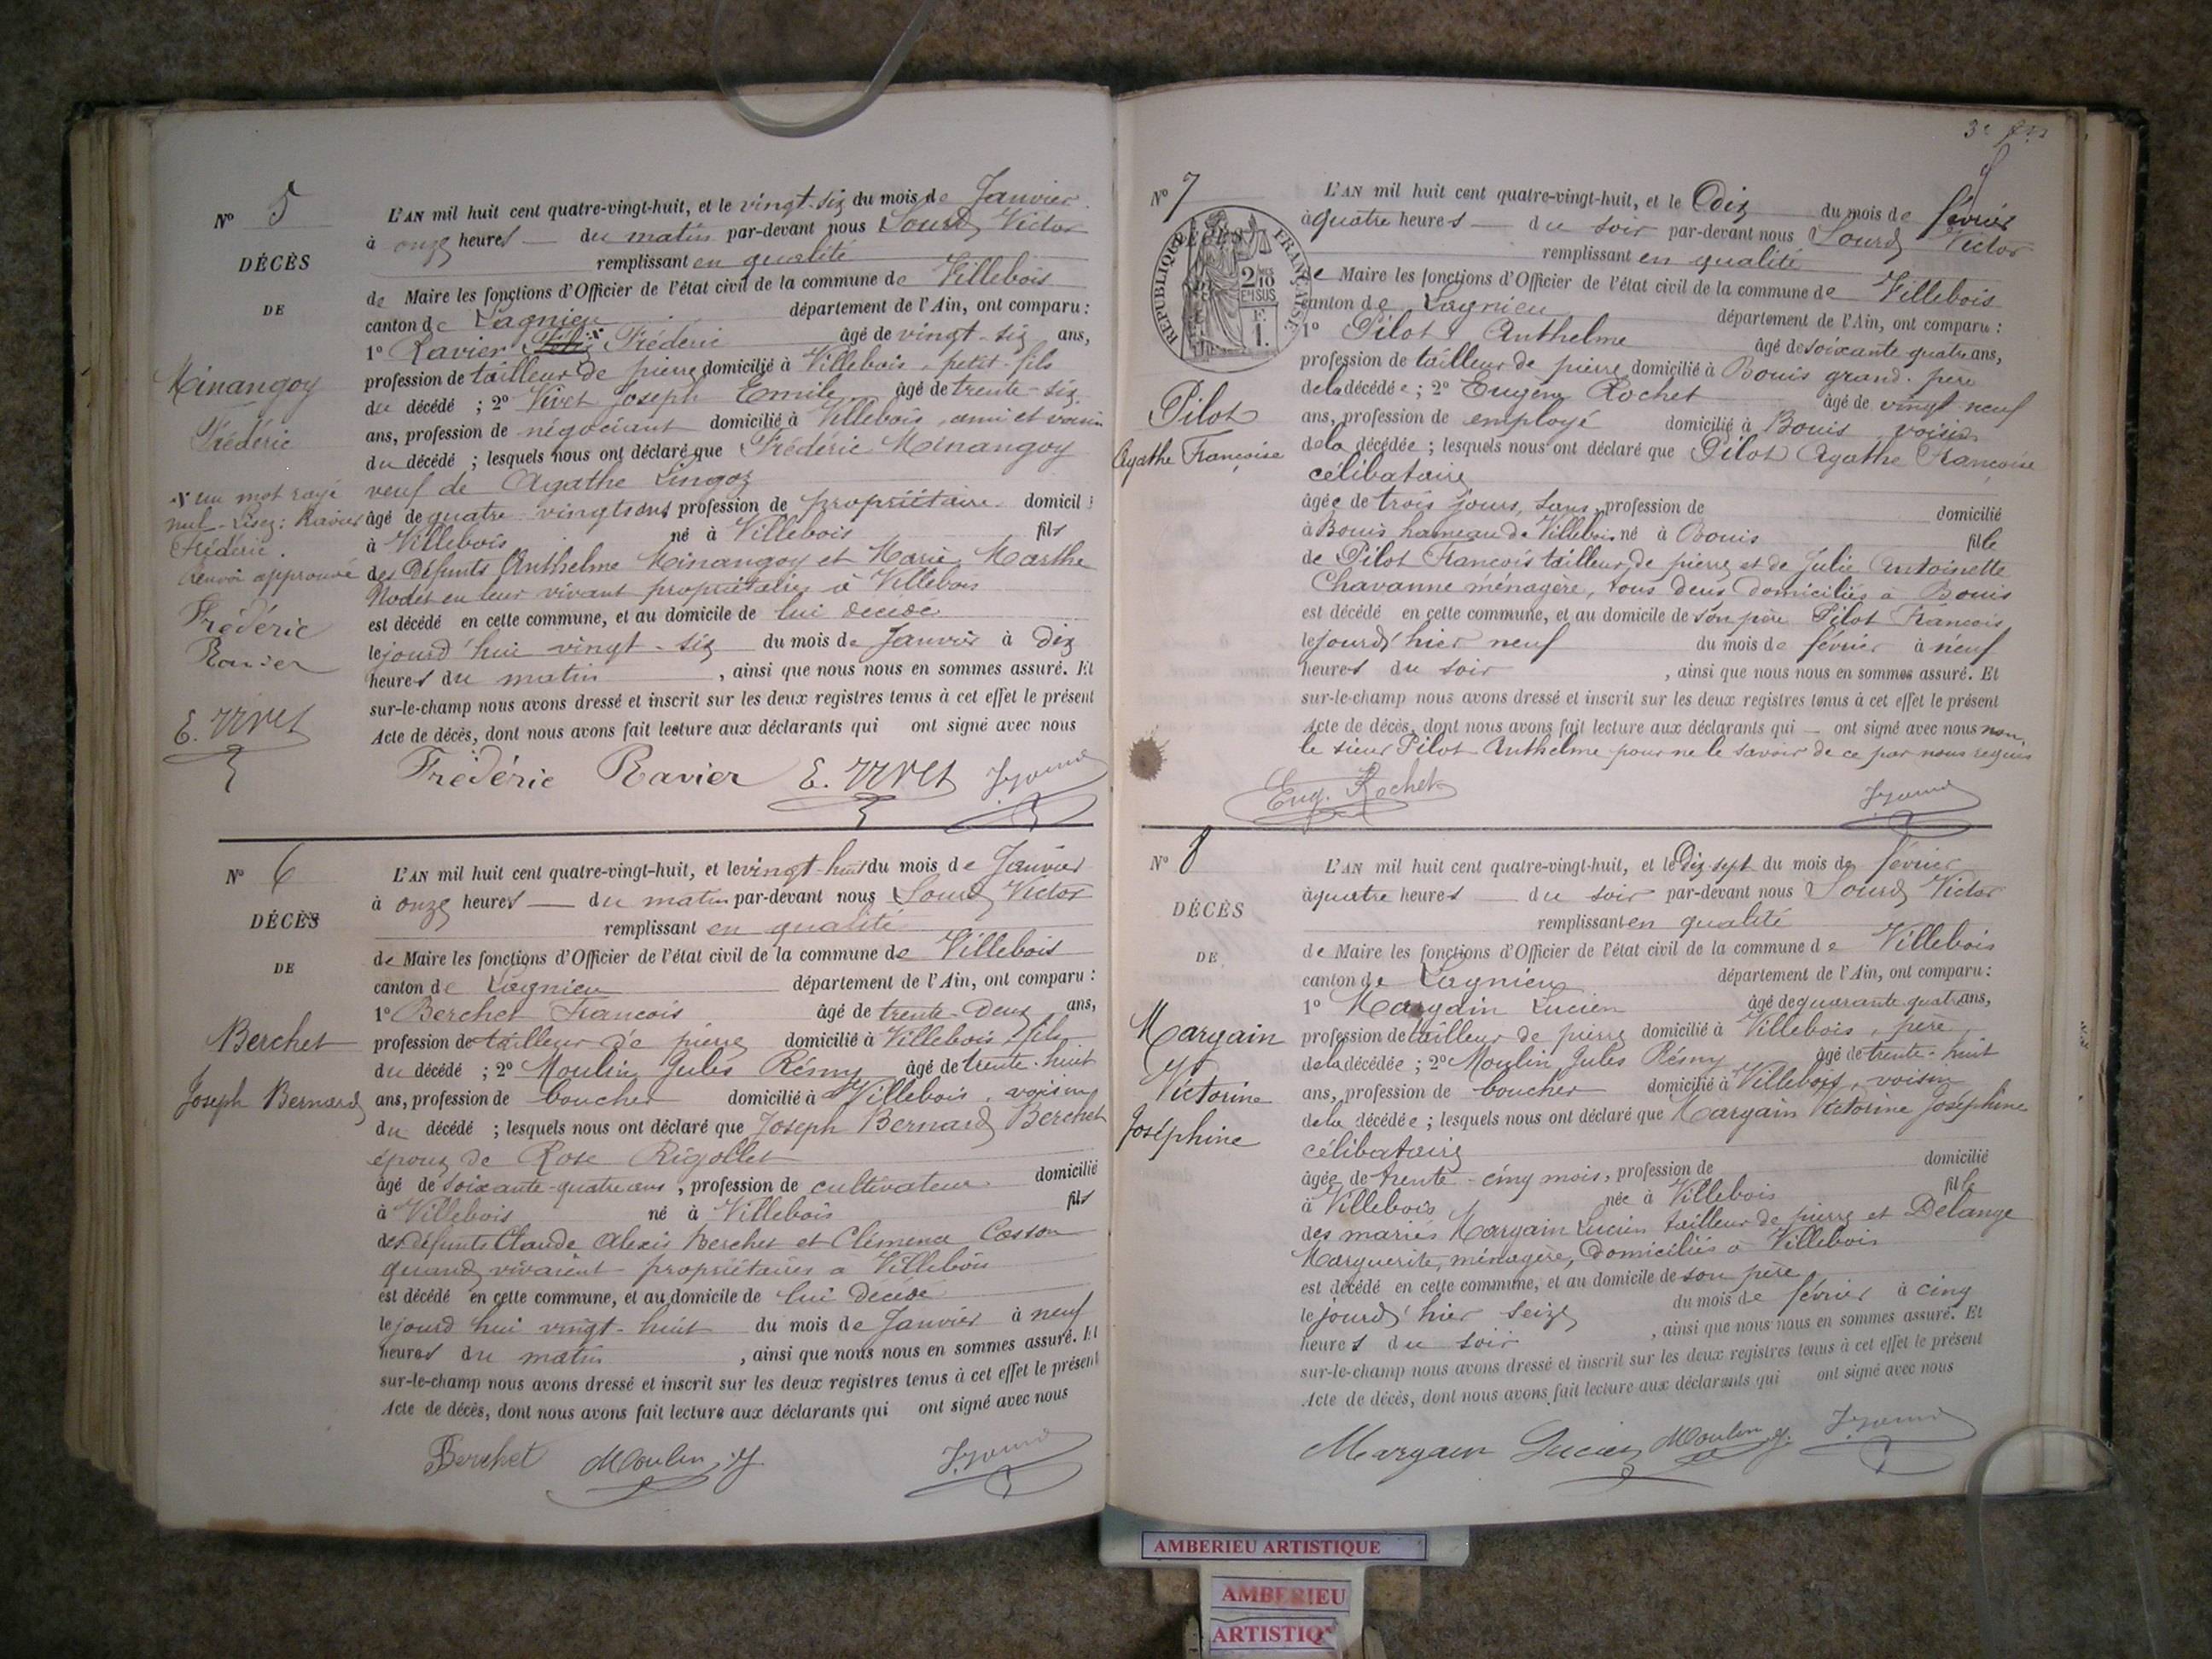 Nº 5
DÉCÈS
DE
Minangoy
Frédéric
X un mot rayé
nul - Lisez : Ravier
Frédéric.
Renvoi approuvé
Frédéric
Ravier
E. Vivet
L'AN mil huit cent quatre-vingt-huit, et le vingt-six du mois de Janvier
à onze heures du matin par-devant nous Sourd Victor
remplissant en qualité
de Maire les fonctions d'Officier de l'état civil de la commune de Villebois
canton de Lagnieu département de l'Ain, ont comparu :
1º Ravier Félix Frédéric âgé de vingt-six ans,
profession de tailleur de pierre domicilié à Villebois, petit-fils
du décédé ; 2º Vivet Joseph Emile âgé de trente-six
ans, profession de négociant domicilié à Villebois, ami et voisin
du décédé ; lesquels nous ont déclaré que Frédéric Minangoy
veuf de Agathe Lingoz
âgé de quatre-vingts ans profession de propriétaire domicilié
à Villebois né à Villebois fils
des défunts Anthelme Minangoy et Marie Marthe
Nodet en leur vivant propriétaires à Villebois
est décédé en cette commune, et au domicile de lui décédé
le jourd'hui vingt-six du mois de Janvier à dix
heures du matin , ainsi que nous nous en sommes assuré. Et
sur-le-champ nous avons dressé et inscrit sur les deux registres tenus à cet effet le présent
Acte de décès, dont nous avons fait lecture aux déclarants qui ont signé avec nous
Frédéric Ravier E. Vivet
Nº 6
DÉCÈS
DE
Berchet
Joseph Bernard
L'AN mil huit cent quatre-vingt-huit, et le vingt-huit du mois de Janvier
à onze heures du matin par-devant nous Sourd Victor
remplissant en qualité
de Maire les fonctions d'Officier de l'état civil de la commune de Villebois
canton de Lagnieu département de l'Ain, ont comparu :
1º Berchet François âgé de trente-deux ans,
profession de tailleur de pierre domicilié à Villebois, fils
du décédé ; 2º Moulin Jules Rémy âgé de trente-huit
ans, profession de boucher domicilié à Villebois, voisin
du décédé ; lesquels nous ont déclaré que Joseph Bernard Berchet
époux de Rose Rigollet
âgé de soixante-quatre ans, profession de cultivateur domicilié
à Villebois né à Villebois fils
des défunts Claude Alexis Berchet et Clémence Cosson
quand vivaient propriétaires à Villebois
est décédé en cette commune, et au domicile de lui décédé
le jourd'hui vingt-huit du mois de Janvier à neuf
heures du matin , ainsi que nous nous en sommes assuré. Et
sur-le-champ nous avons dressé et inscrit sur les deux registres tenus à cet effet le présent
Acte de décès, dont nous avons fait lecture aux déclarants qui ont signé avec nous
Berchet Moulin J.
Nº 7
RÉPUBLIQUE FRANÇAISE
2/10 EN SUS
F. 1.
Pilot
Agathe Françoise
L'AN mil huit cent quatre-vingt-huit, et le dix du mois de février
à quatre heures du soir par-devant nous Sourd Victor
remplissant en qualité
de Maire les fonctions d'Officier de l'état civil de la commune de Villebois
canton de Lagnieu département de l'Ain, ont comparu :
1º Pilot Anthelme âgé de soixante quatre ans,
profession de tailleur de pierre domicilié à Bouis grand-père
de la décédée ; 2º Eugène Rochet âgé de vingt neuf
ans, profession de employé domicilié à Bouis, voisin
de la décédée ; lesquels nous ont déclaré que Pilot Agathe Françoise
célibataire
âgée de trois jours, sans profession de domicilié
à Bouis hameau de Villebois né à Bouis fille
de Pilot François tailleur de pierre et de Julie Antoinette
Chavanne ménagère, tous deux domiciliés à Bouis
est décédé en cette commune, et au domicile de son père Pilot François
le jourd'hier neuf du mois de février à neuf
heures du soir , ainsi que nous nous en sommes assuré. Et
sur-le-champ nous avons dressé et inscrit sur les deux registres tenus à cet effet le présent
Acte de décès, dont nous avons fait lecture aux déclarants qui ont signé avec nous non
le sieur Pilot Anthelme pour ne le savoir de ce par nous requis
Eug. Rochet
Nº 8
DÉCÈS
DE
Margain
Victorine
Joséphine
L'AN mil huit cent quatre-vingt-huit, et le dix-sept du mois de février
à quatre heures du soir par-devant nous Sourd Victor
remplissant en qualité
de Maire les fonctions d'Officier de l'état civil de la commune de Villebois
canton de Lagnieu département de l'Ain, ont comparu :
1º Margain Lucien âgé de quarante-quatre ans,
profession de tailleur de pierre domicilié à Villebois, père
de la décédée ; 2º Moulin Jules Rémy âgé de trente-huit
ans, profession de boucher domicilié à Villebois, voisin
de la décédée ; lesquels nous ont déclaré que Margain Victorine Joséphine
célibataire
âgée de trente-cinq mois, profession de domicilié
à Villebois née à Villebois fille
des mariés Margain Lucien tailleur de pierre et Delange
Marguerite, ménagère, domiciliés à Villebois
est décédé en cette commune, et au domicile de son père
le jourd'hier seize du mois de février à cinq
heures du soir , ainsi que nous nous en sommes assuré. Et
sur-le-champ nous avons dressé et inscrit sur les deux registres tenus à cet effet le présent
Acte de décès, dont nous avons fait lecture aux déclarants qui ont signé avec nous
Margain Lucien Moulin J.
AMBERIEU ARTISTIQUE
AMBERIEU
ARTISTIQ